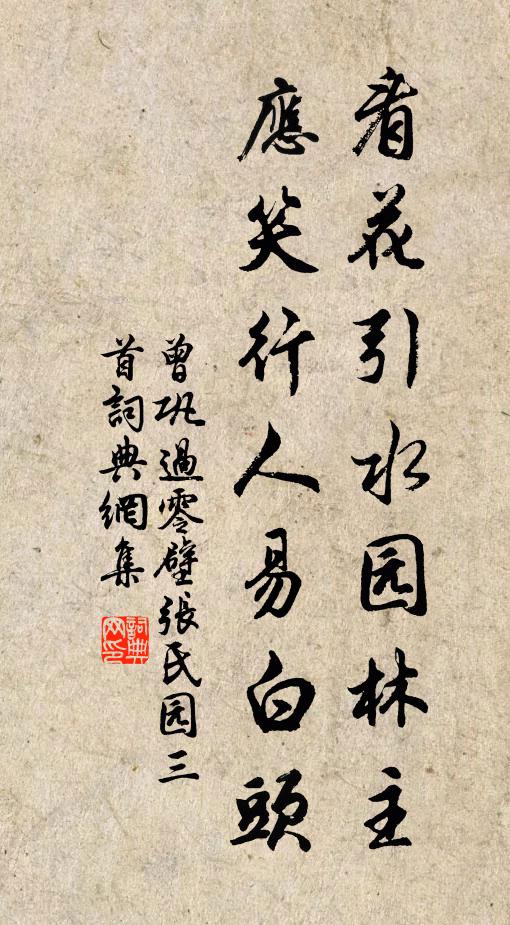 看花引水园林主
應笑行人易白頭
曾巩過零壁張民园三
首詞典網集
詞典網印